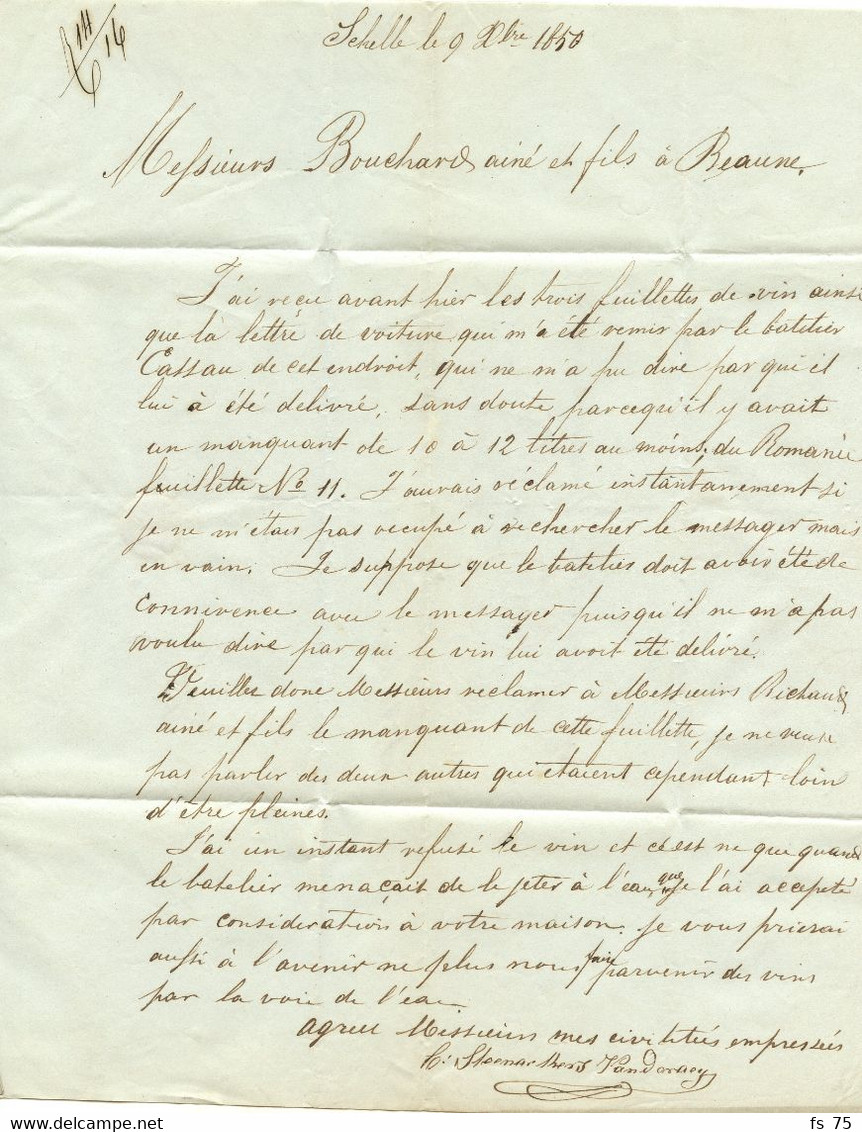 R 14/16
Schelle le 9 Xbre 1850
Messieurs Bouchard ainé et fils à Beaune.
J'ai reçu avant hier les trois feuillettes de vin ainsi
que la lettre de voiture qui m'a été remis par le batelier
Cassau de cet endroit, qui ne m'a pu dire par qui il
lui à été delivré, sans doute parcequ'il y avait
un manquant de 10 à 12 litres au moins, du Romanée
feuillette No 11. J'aurais réclamé instantanement si
je ne m'etais pas occupé à rechercher le messager mais
en vain. Je suppose que le batelies doit avoir été de
connivence avec le messager puisqu'il ne m'a pas
voulu dire par qui le vin lui avoit été délivré.
Veuillez donc Messieurs reclamer à Messieurs Richard
ainé et fils le manquant de cette feuillette, je ne veux
pas parler des deux autres qui étaient cependant loin
d'être pleines.
J'ai un instant refusé le vin et c'est ne que quand
le batelier menaçait de le jeter à l'eau que je l'ai accepté
par consideration à votre maison. Je vous prierai
aussi à l'avenir ne plus nous faire parvenir des vins
par la voie de l'eau
agreez Messieurs mes civilités empressées
C: Steenackers Vanderney
fs 75